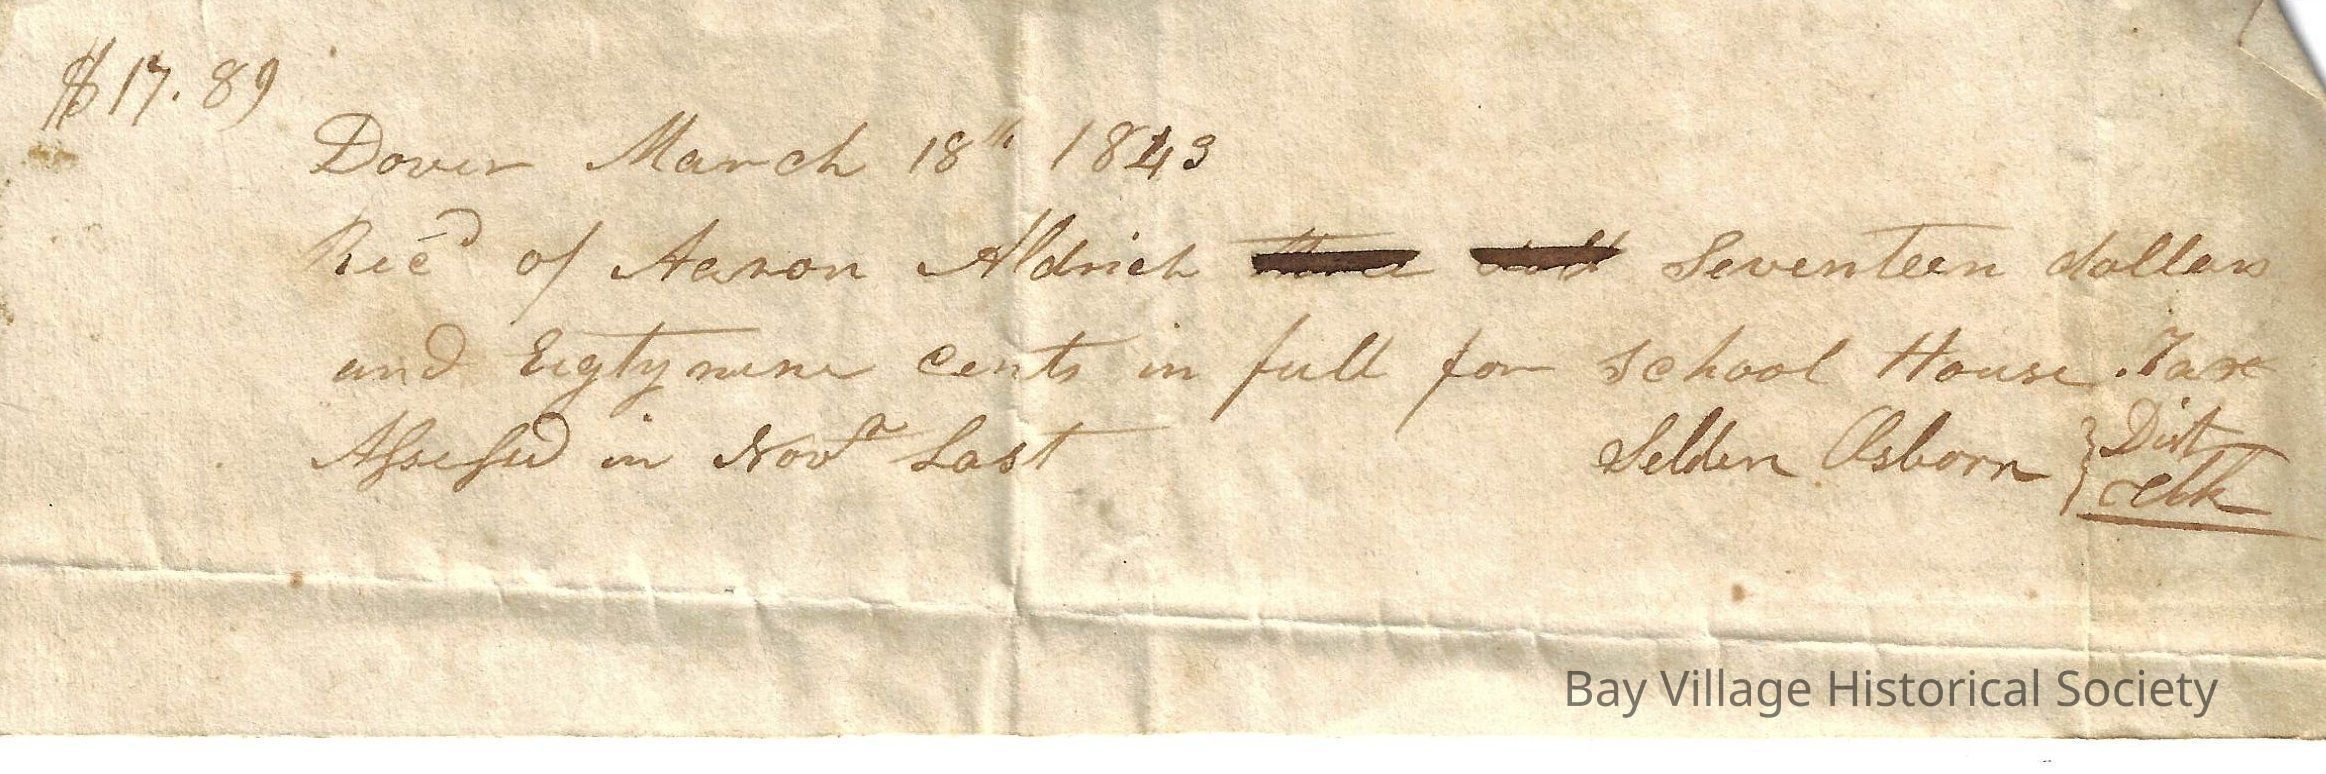 $17.89
Dover March 18th 1843
Recd of Aaron Aldrich Seventeen dollars
and Eigtynine Cents in full for School House Tax
Assessed in Novr Last
Selden Osborn } Dist Clk
Bay Village Historical Society